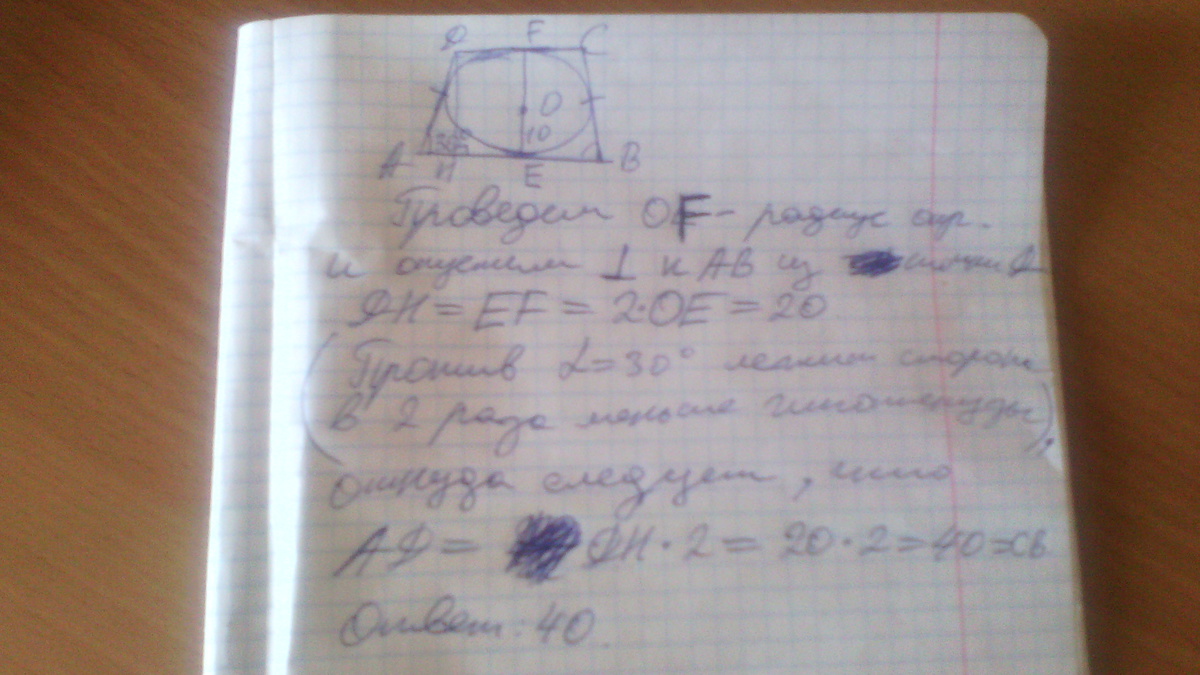 D F C
O
30° 10
A H E B
Проведем OF - радиус окр.
и опустим ⊥ к AB из точки D
DH = EF = 2·OE = 20
(Против ∠=30° лежит сторона
в 2 раза меньше гипотенузы).
откуда следует, что
AD = DH · 2 = 20 · 2 = 40 = CB
Ответ: 40.